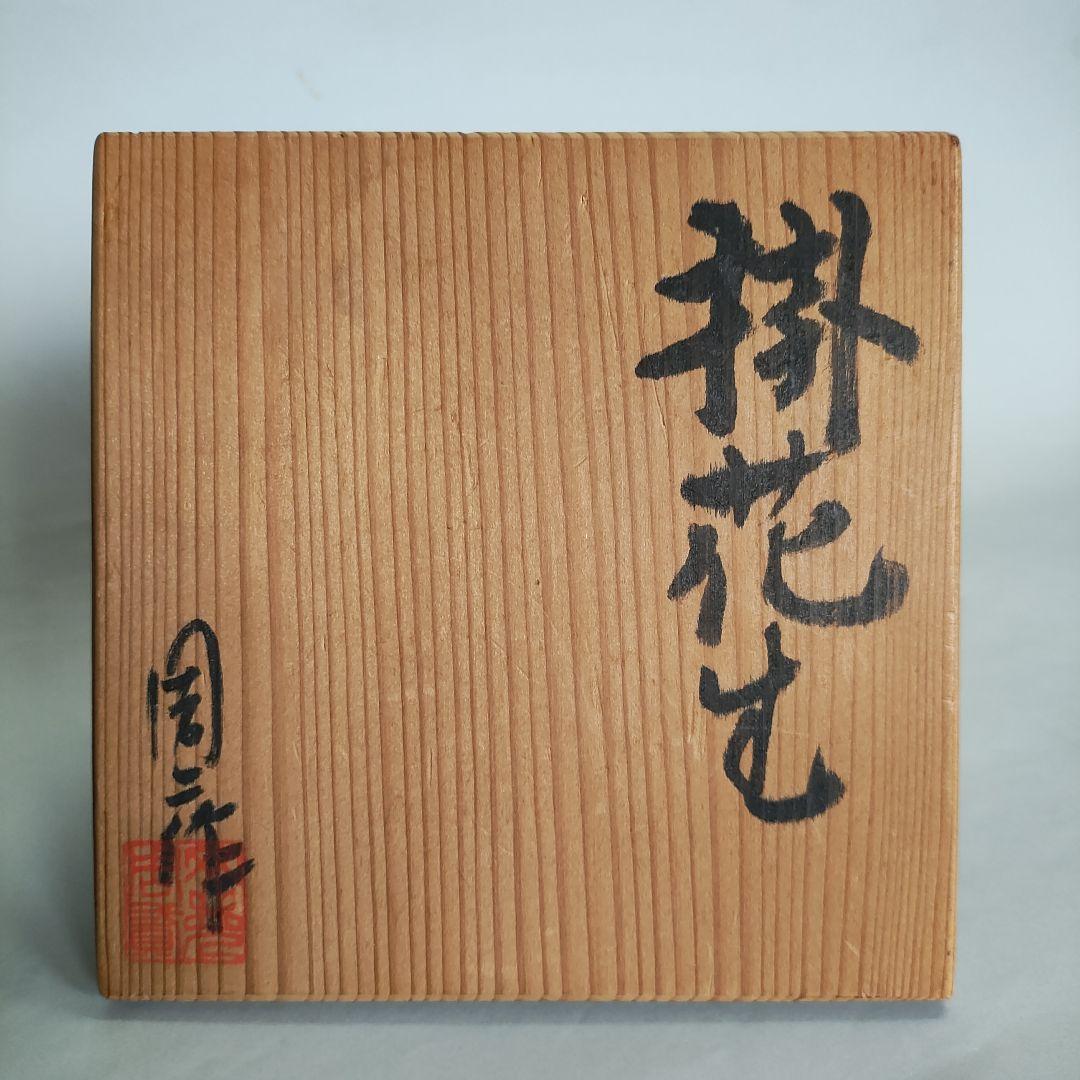 掛花生
周二作